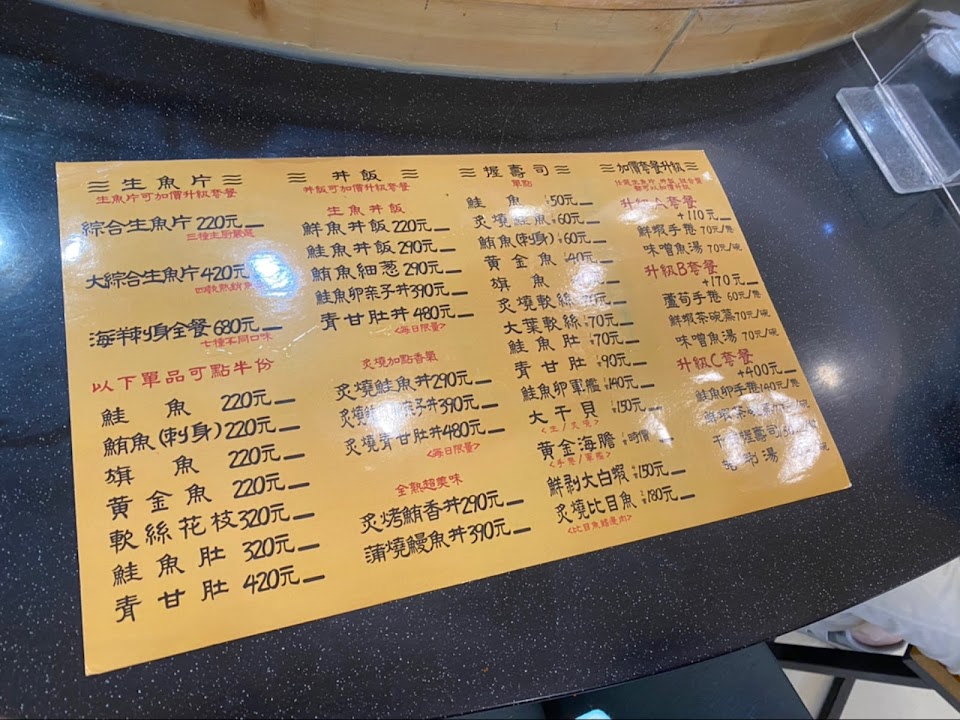 生魚片
生魚片可加價升級套餐
綜合生魚片 220元
三種主廚嚴選
大綜合生魚片 420元
海洋刺身全餐 680元
七種不同口味
以下單品可點半份
鮭魚 220元
鮪魚(刺身) 220元
旗魚 220元
黃金魚 220元
軟絲花枝 320元
鮭魚肚 320元
青甘肚 420元
丼飯
丼飯可加價升級套餐
生魚丼飯
鮮魚丼飯 220元
鮭魚丼飯 290元
鮪魚細葱 290元
鮭魚卵亲子丼 390元
青甘肚丼 480元
<每日限量>
炙燒加點香氣
炙燒鮭魚丼 290元
炙燒 子丼 390元
炙燒青甘肚丼 480元
<每日限量>
全熟超美味
炙烤鮪香丼 290元
蒲燒鰻魚丼 390元
握壽司
單點
鮭魚 50元
炙燒鮭魚 60元
鮪魚(刺身) 60元
黃金魚 40元
旗魚
炙燒軟絲 70元
大葉軟絲 70元
鮭魚肚 70元
青甘肚 90元
鮭魚卵軍艦 140元
大干貝 150元
黃金海膽 時價
<手卷/軍艦>
鮮剥大白蝦 150元
炙燒比目魚 180元
<比目魚鰭邊肉>
加價套餐升級
升級A套餐
+110元
鮮蝦手捲 70元/
味噌魚湯 70元/碗
升級B套餐
+170元
蘆筍手捲 60元/
鮮蝦茶碗蒸 70元/
味噌魚湯 70元/碗
升級C套餐
+400元
鮭魚卵手捲 140元/
鮮蝦茶碗
握壽司
湯